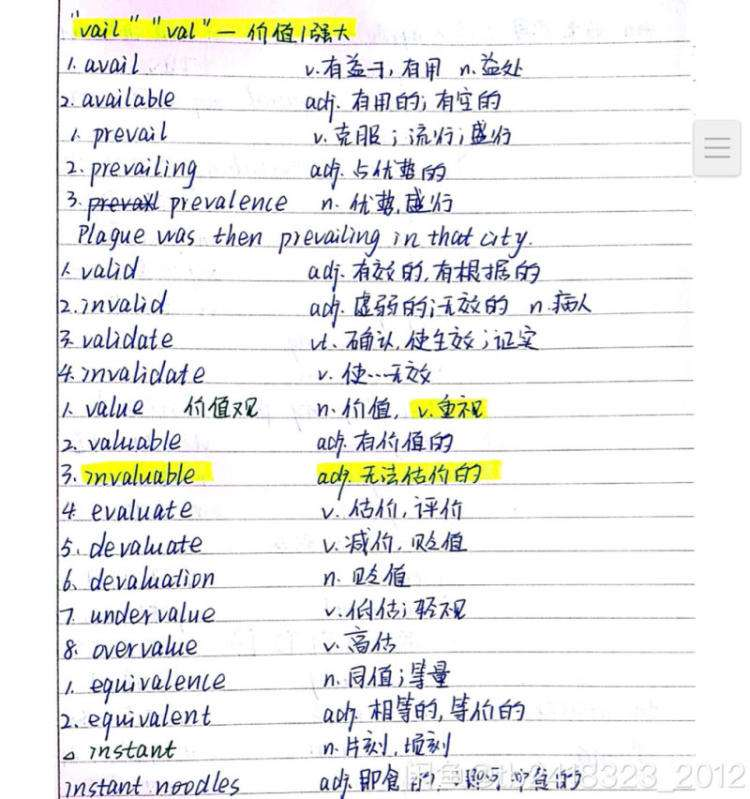 "vail" "val" — 价值/强大
1. avail v. 有益于, 有用 n. 益处
2. available adj. 有用的; 有空的
1. prevail v. 克服; 流行; 盛行
2. prevailing adj. 占优势的
3. prevail prevalence n. 优势, 盛行
Plague was then prevailing in that city.
1. valid adj. 有效的, 有根据的
2. invalid adj. 虚弱的; 无效的 n. 病人
3. validate vt. 确认, 使生效; 证实
4. invalidate v. 使…无效
1. value 价值观 n. 价值, v. 重视
2. valuable adj. 有价值的
3. invaluable adj. 无法估价的
4. evaluate v. 估价, 评价
5. devaluate v. 减价, 贬值
6. devaluation n. 贬值
7. undervalue v. 低估; 轻视
8. overvalue v. 高估
1. equivalence n. 同值; 等量
2. equivalent adj. 相等的, 等价的
△ instant n. 片刻, 顷刻
instant noodles adj. 即食的